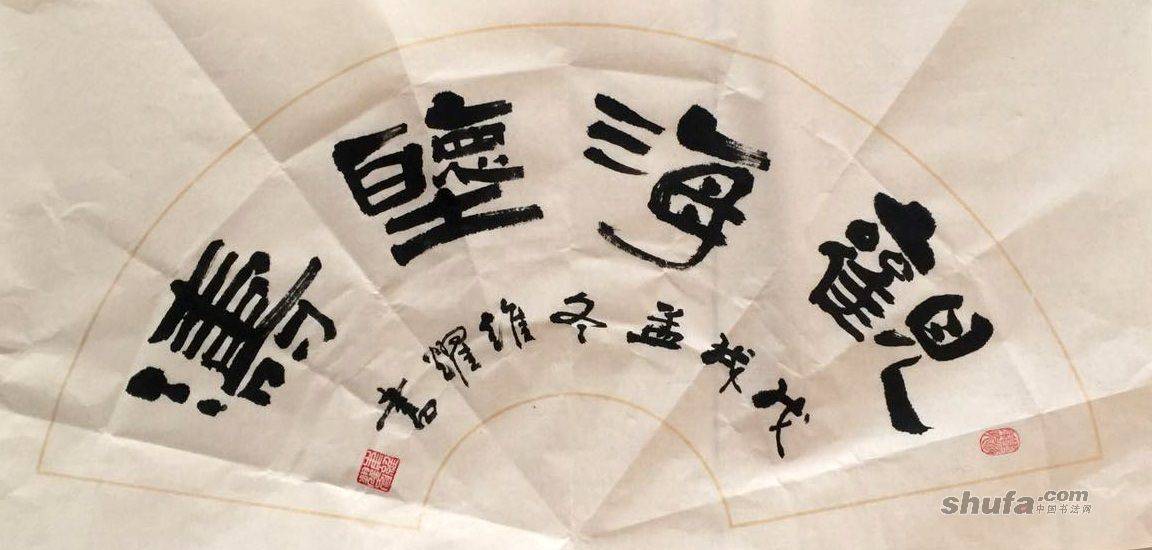 觀海聽濤
戊戌孟冬維耀書
shufa.com
中国书法网